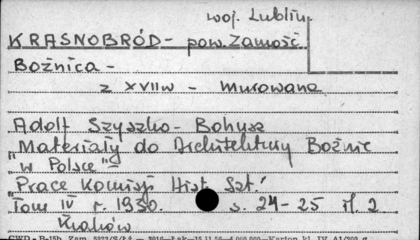 woj. Lublin
KRASNOBRÓD - pow. Zamość
Bożnica -
z XVII w - murowana
Adolf Szyszko - Bohusz
"Materiały do Architektury Bożnic
w Polsce" -
"Prace Komisji Hist. Szt."
Tom IV r. 1930. s. 24-25 il. 2
Kraków